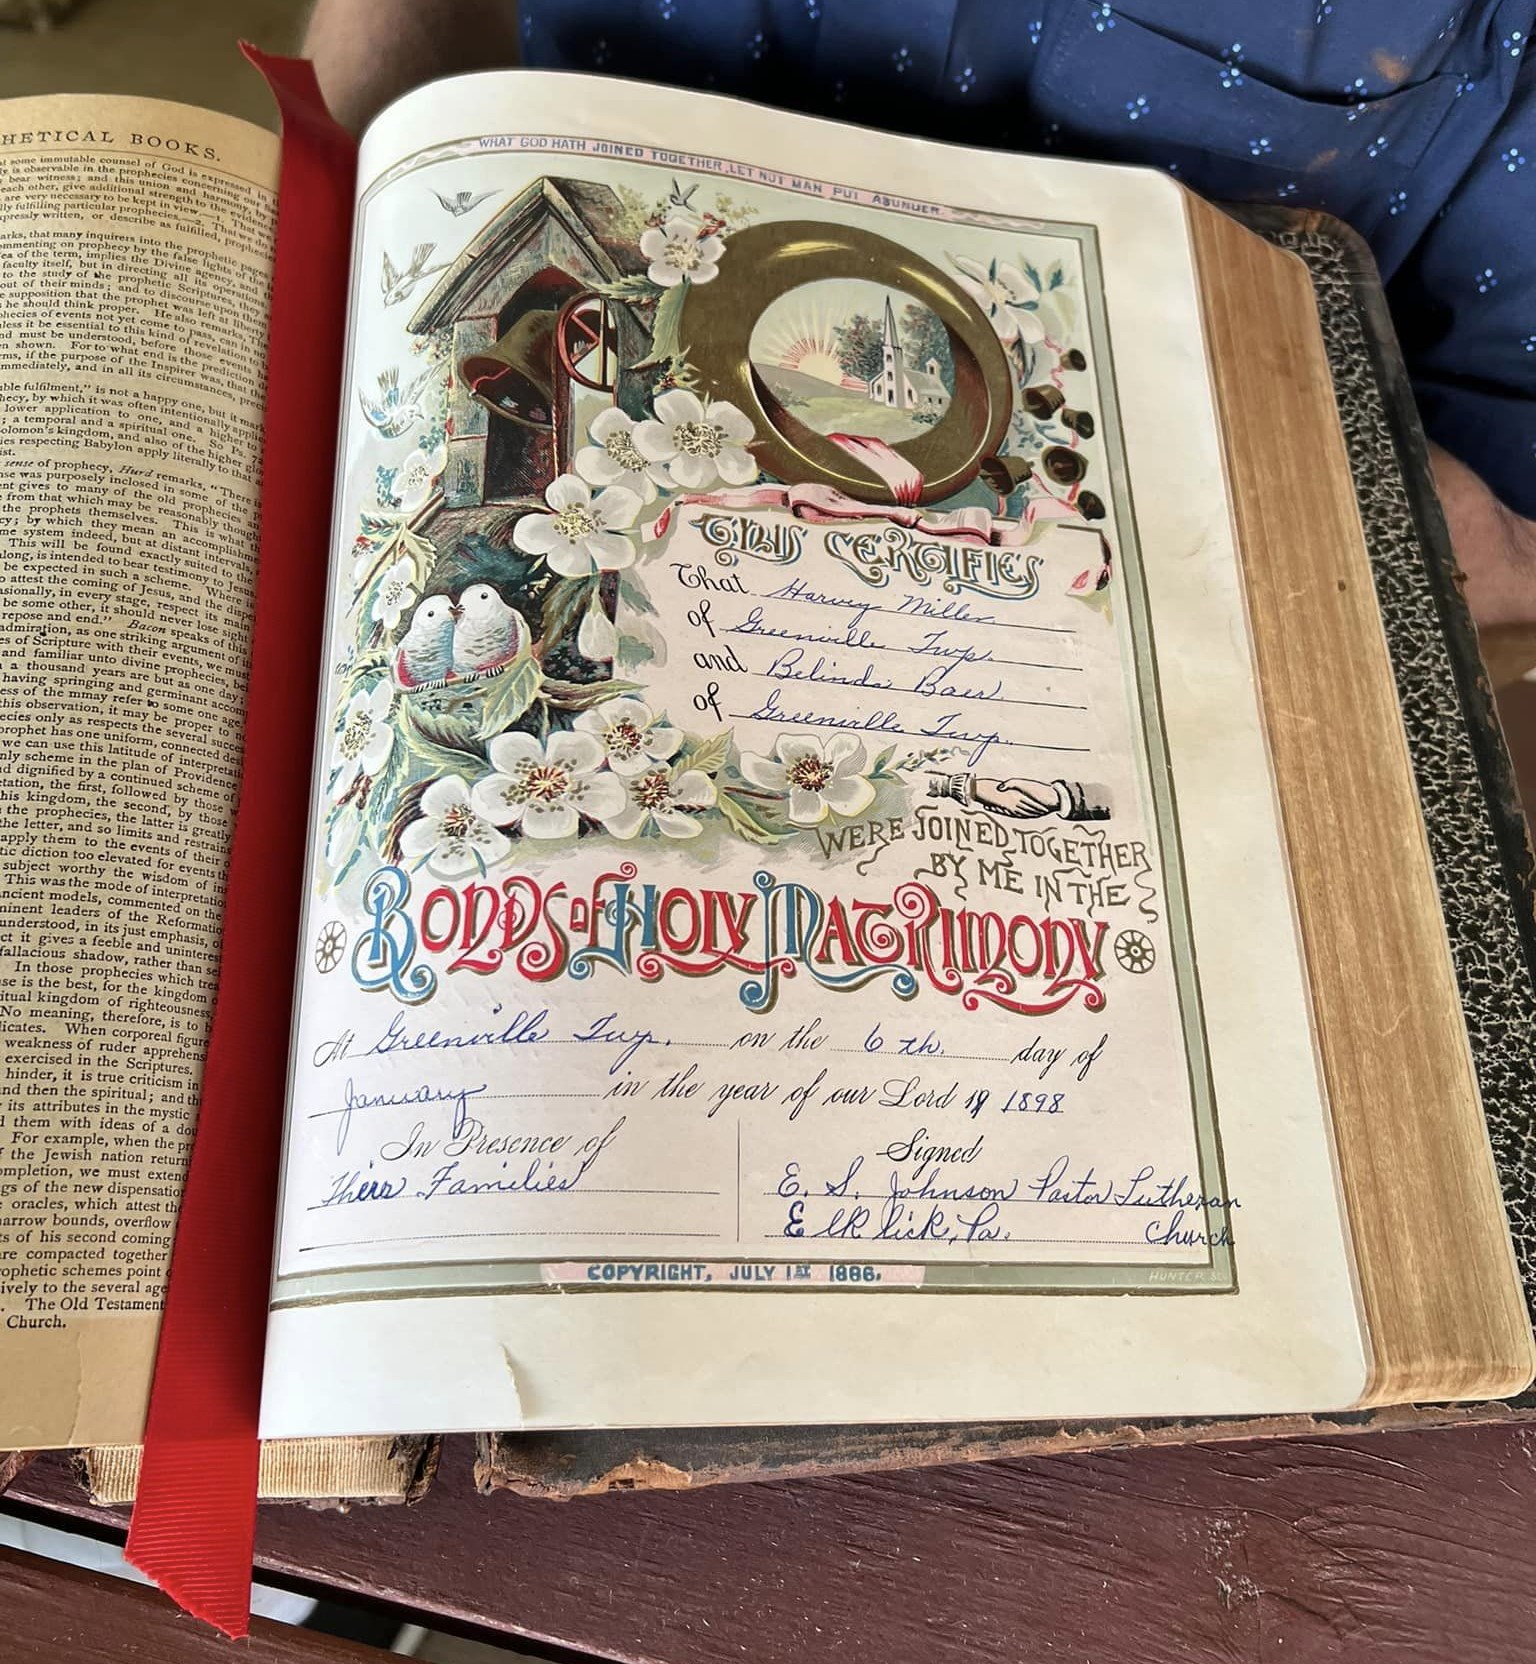 HETICAL BOOKS.
some immutable counsel of God is expressed in
is observable in the prophecies concerning our
bear witness; and this union and harmony, by
each other, give additional strength to the evidence
are very necessary to be kept in view
fulfilling particular prophecies.
expressly written, or describe as fulfilled, prophecies
arks, that many inquirers into the prophetic pages
ommenting on prophecy by the false lights of the
ea of the term, implies the Divine agency, and
faculty itself, but in directing all its operations
to the study of the prophetic Scriptures, they
out of their minds; and to discourse upon them
e supposition that the prophet was left at liberty
he should think proper. He also remarks, The
phecies of events not yet come to pass, can in no
less it be essential to this kind of revelation to
nd must be understood, before those events
en shown. For to what end is the prediction
rms, if the purpose of the Inspirer was, that the
mmediately, and in all its circumstances, precis
able fulfilment," is not a happy one, but it mark
hecy, by which it was often intentionally applied
lower application to one, and a higher to
; a temporal and a spiritual one. So Ps. 72
olomon's kingdom, and also of the higher
ies respecting Babylon apply literally to that
ist.
sense of prophecy, Hurd remarks, "There is
nse was purposely inclosed in some of the
ent gives to many of the old prophecies an
from that which may be reasonably thought
the prophets themselves. This is what
cy; by which they mean an accomplishment
me system indeed, but at distant intervals,
This will be found exactly suited to the
along, is intended to bear testimony to Jesus.
be expected in such a scheme. Where
o attest the coming of Jesus, and the dispe
asionally, in every stage, respect its main
be some other, it should never lose sight
repose and end." Bacon speaks of this
admiration, as one striking argument of its
es of Scripture with their events, we must
and familiar unto divine prophecies, bei
a thousand years are but as one day;
having springing and germinant accom
ess of the mmay refer to some one age.
this observation, it may be proper to
ecies only as respects the several succes
prophet has one uniform, connected des
we can use this latitude of interpretati
nly scheme in the plan of Providence
d dignified by a continued scheme of
etation, the first, followed by those
his kingdom, the second, by those
the prophecies, the latter is greatly
the letter, and so limits and restrains
apply them to the events of their
tic diction too elevated for events th
subject worthy the wisdom of
This was the mode of interpretatio
ncient models, commented on the
minent leaders of the Reformatio
understood, in its just emphasis, of
ct it gives a feeble and uninterest
fallacious shadow, rather than
In those prophecies which trea
se is the best, for the kingdom
itual kingdom of righteousness,
No meaning, therefore, is to b
licates. When corporeal figure
weakness of ruder apprehens
exercised in the Scriptures.
hinder, it is true criticism in
nd then the spiritual; and th
its attributes in the mystic
d them with ideas of a dou
For example, when the pr
f the Jewish nation return
ompletion, we must extend
gs of the new dispensation
oracles, which attest the
narrow bounds, overflow
ts of his second coming
are compacted together
rophetic schemes point
ively to the several age
The Old Testament
Church.
WHAT GOD HATH JOINED TOGETHER, LET NOT MAN PUT ASUNDER
THIS CERTIFIES
That Harvey Miller
of Greenville Twp.
and Belinda Baer
of Greenville Twp.
WERE JOINED TOGETHER
BY ME IN THE
BONDS OF HOLY MATRIMONY
At Greenville Twp. on the 6 th. day of
January in the year of our Lord 19 1898
In Presence of
Their Families
Signed
E. S. Johnson Pastor Lutheran
Elk lick, Pa. Church
COPYRIGHT, JULY 1ST 1886.
HUNTER SC